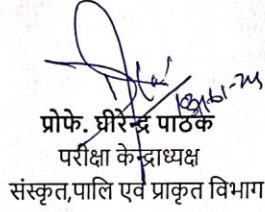 प्रोफे. धीरेन्द्र पाठक
परीक्षा केन्द्राध्यक्ष
संस्कृत,पालि एवं प्राकृत विभाग